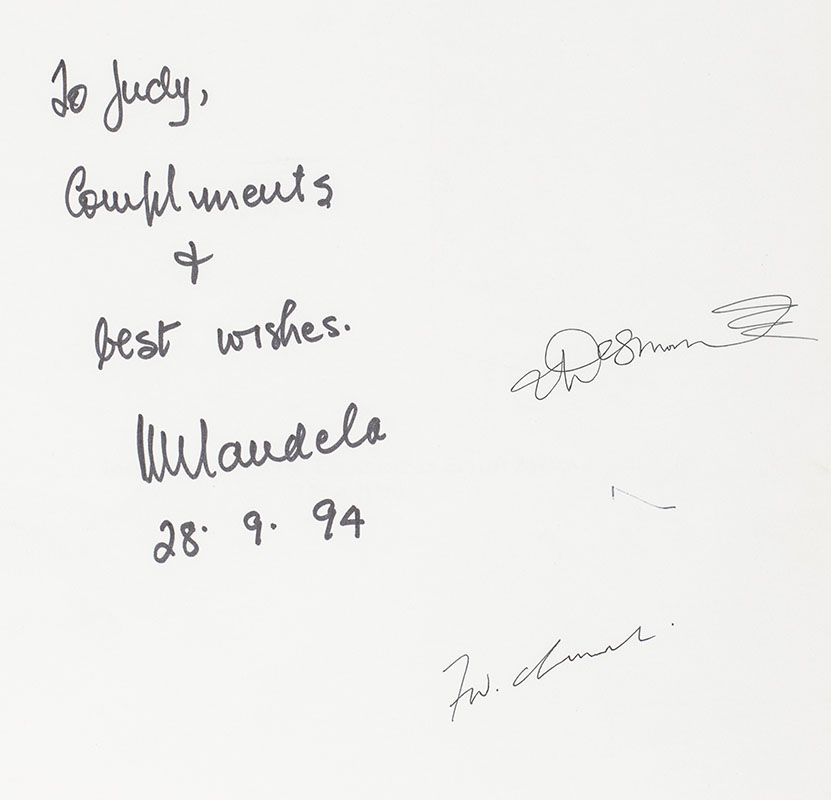 To Judy,
Compliments
&
best wishes.
NMandela
28. 9. 94
Desmond
F.W. de Klerk.